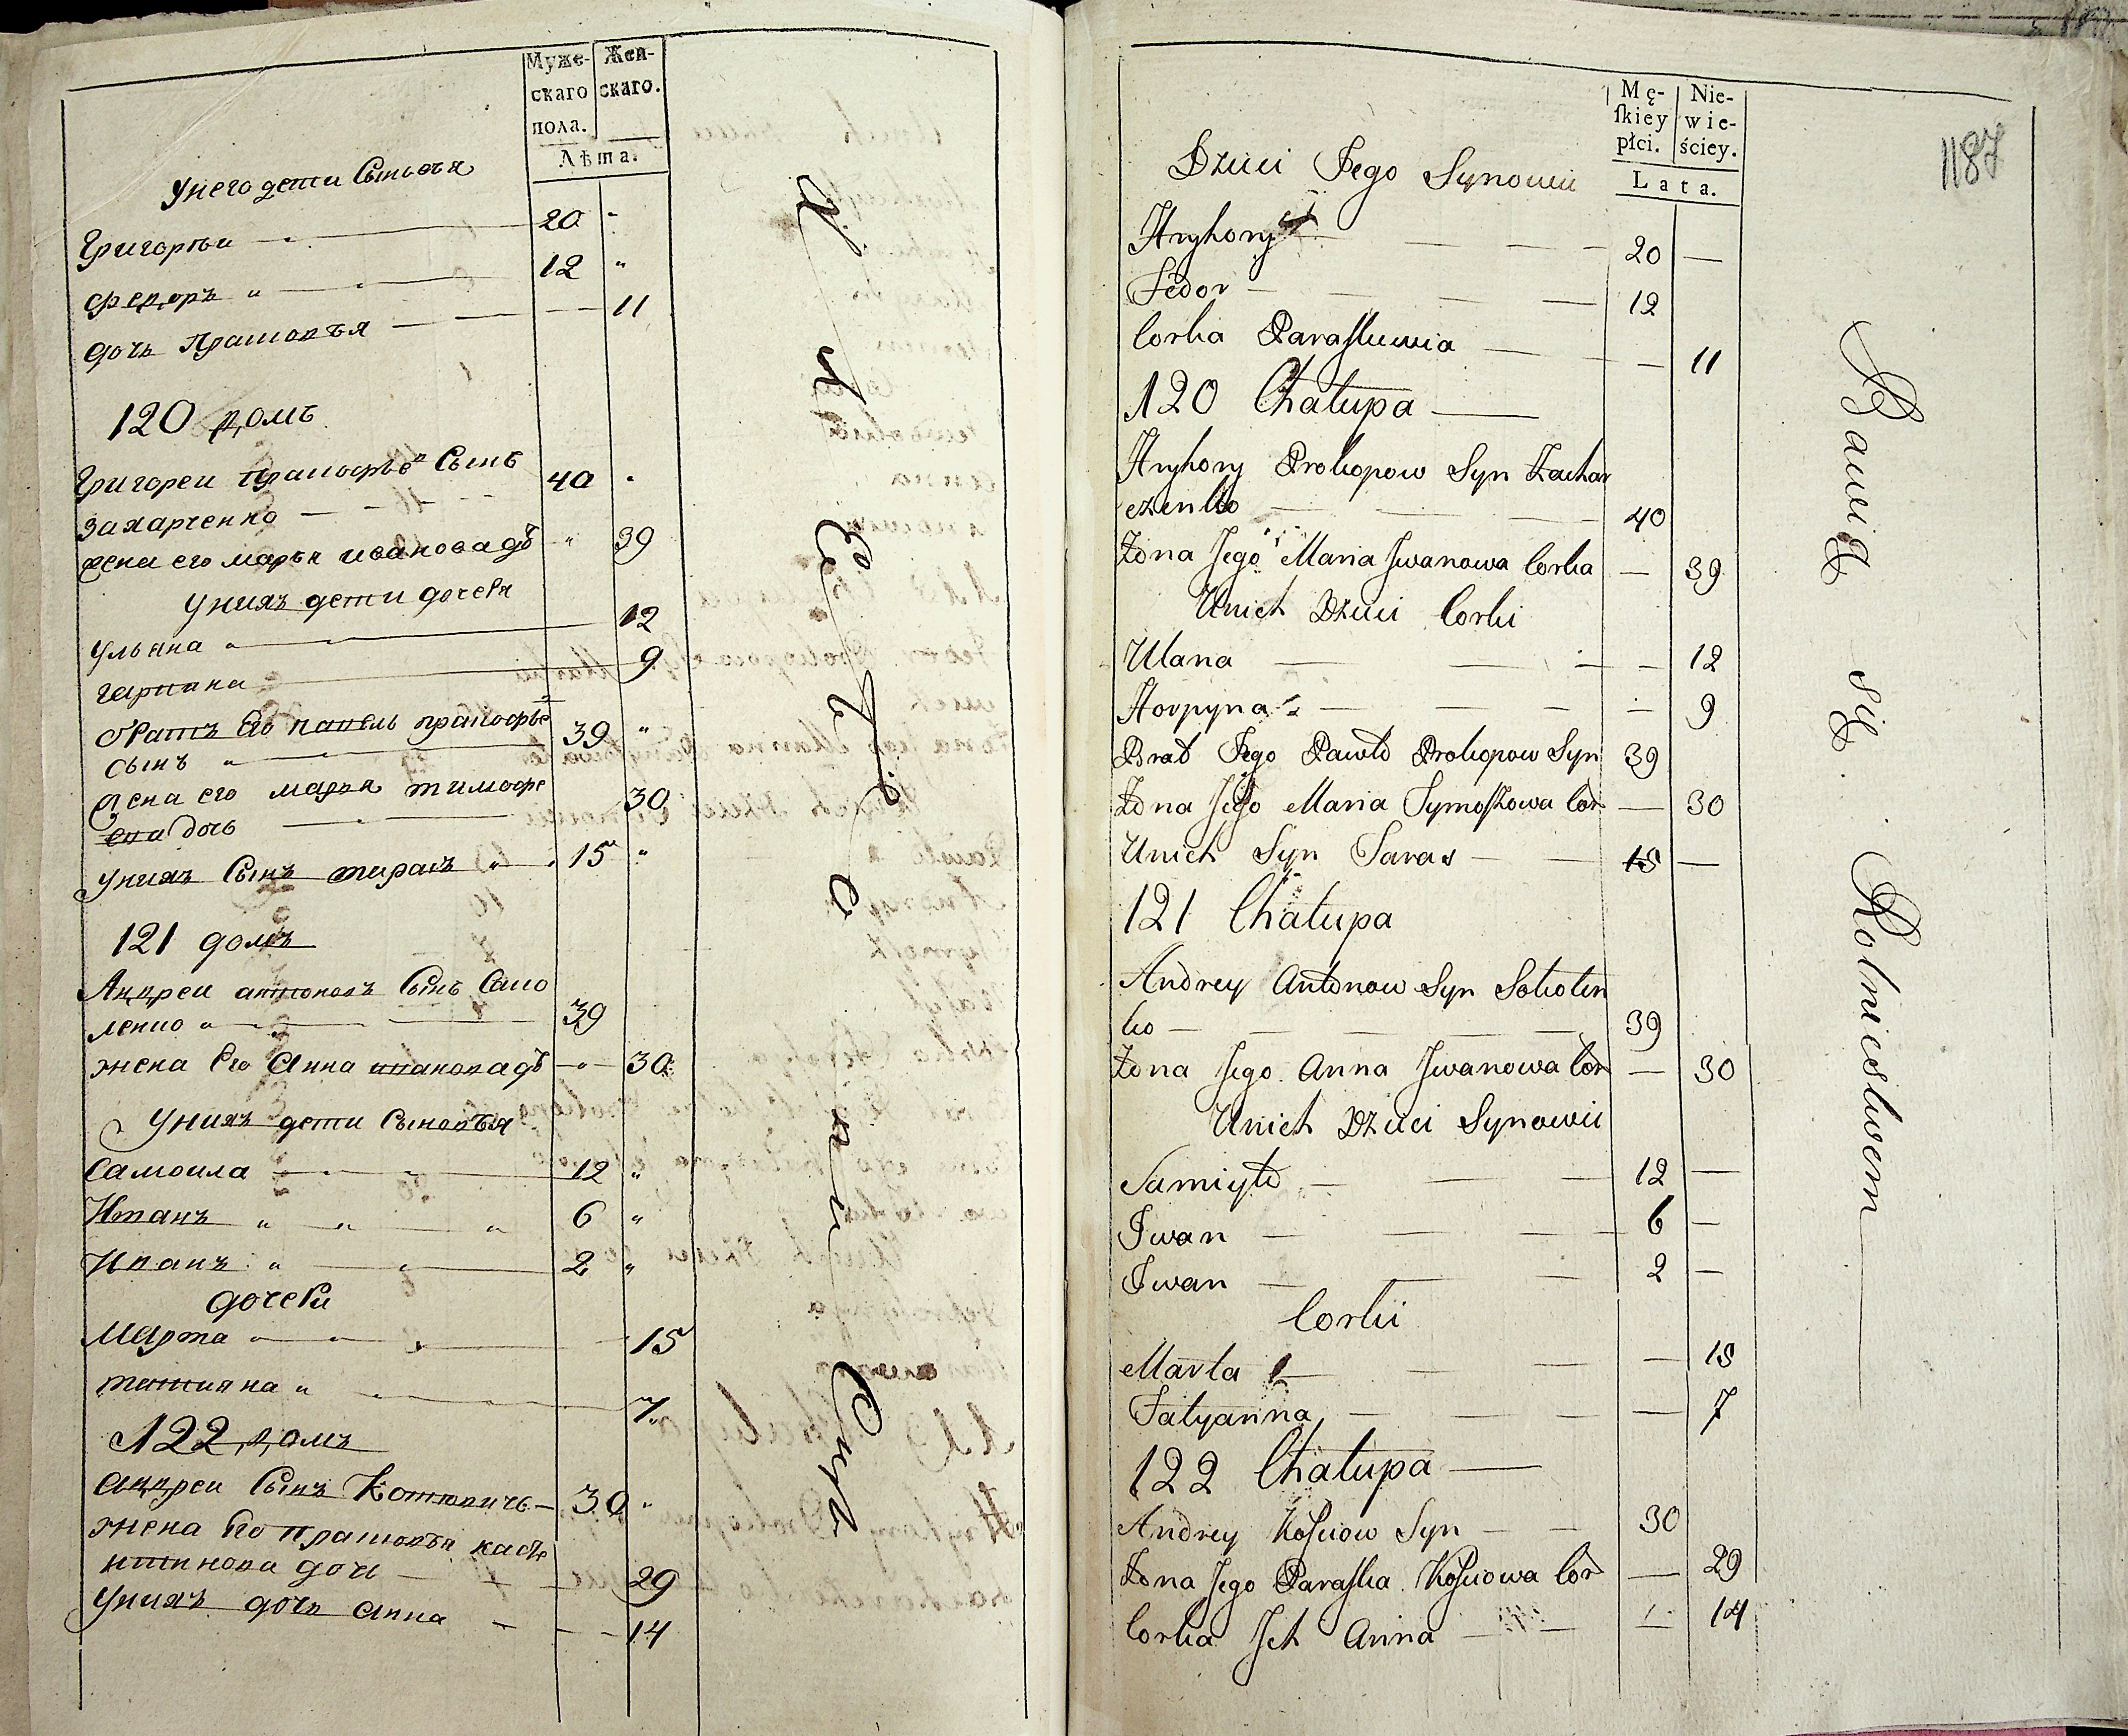 Муже-
скаго
пола.
Жен-
скаго.
Лѣта.
У него дети Сыновья
Григореи 20
Федоръ 12
дочь Прасковья 11
120 домъ
Григореи Прокофьевъ Сынъ 40
Захарченко
жена его марья ивановадъ 39
У нихъ дети дочери
ульяна 12
гарпина 9
братъ Его павелъ прокофьевъ 39
сынъ
жена его марья тимофе 30
ева дочь
У нихъ Сынъ тарасъ 15
121 домъ
Андреи антоновъ Сынъ Соко
ленко 39
жена Его Анна ивановадъ 30
У нихъ дети Сыновья
Самоила 12
Иванъ 6
Иванъ 2
дочери
Марта 15
татияна 7
122 домъ
Андреи Сынъ 30
жена Его Прасковья касте
нтинова дочь 29
У нихъ дочь Анна 14
Mę-
ſkiey
płci.
Nie-
wie-
ściey.
Lata.
1187
Dzieci Jego Synowie
Hryhory 20 —
Fedor 12
Corka Paraskiewia — 11
120 Chałupa
Hryhory Prokopow Syn Zachar
czenko 40
Żona Jego Maria Jwanowa Corka — 39
Unich Dzieci Corki
Ulana — 12
Horpyna — 9
Brat Jego Pawło Prokopow Syn 39
Żona Jego Maria Tymoszkowa Cor — 30
Unich Syn Taras 15 —
121 Chałupa
Andrey Antonow Syn Sokolen
ko 39
Żona Jego Anna Jwanowa Cor — 30
Unich Dzieci Synowii
Samiyło 12 —
Jwan 6 —
Jwan 2 —
Corki
Marta — 15
Tatyanna — 7
122 Chałupa
Andrey Kośćiow Syn 30
Żona Jego Paraska Kośćiowa Cor — 29
Corka Jch Anna — 14
Bawią się Rolnictwem